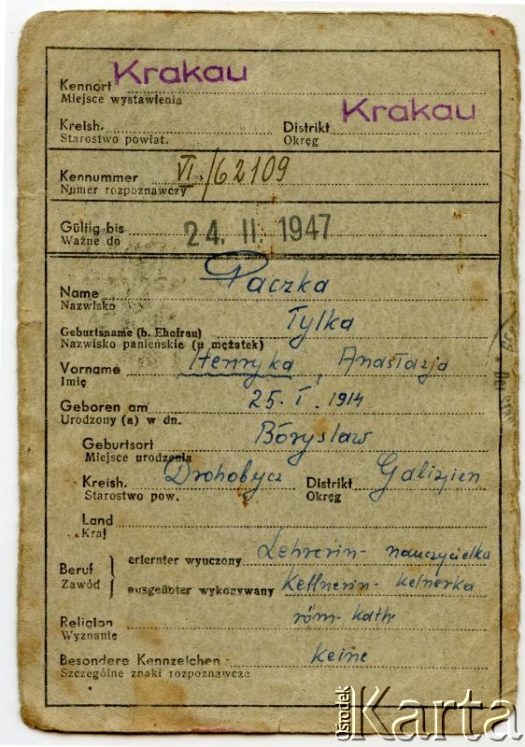 Kennort Krakau
Miejsce wystawienia
Kreish. Distrikt Krakau
Starostwo powiat. Okręg
Kennummer VI/62109
Numer rozpoznawczy
Gültig bis 24. II. 1947
Ważne do
Name Paczka
Nazwisko
Geburtsname (b. Ehefrau) Tylka
Nazwisko panieńskie (u mężatek)
Vorname Henryka, Anastazja
Imię
Geboren am 25. I. 1914
Urodzony (a) w dn.
Geburtsort Borysław
Miejsce urodzenia
Kreish. Drohobycz Distrikt Galizien
Starostwo pow. Okręg
Land
Kraj
Beruf erlernter wyuczony Lehrerin - nauczycielka
Zawód ausgeübter wykonywany Kellnerin - kelnerka
Religion röm-kath
Wyznanie
Besondere Kennzeichen keine
Szczególne znaki rozpoznawcze
Ośrodek Karta